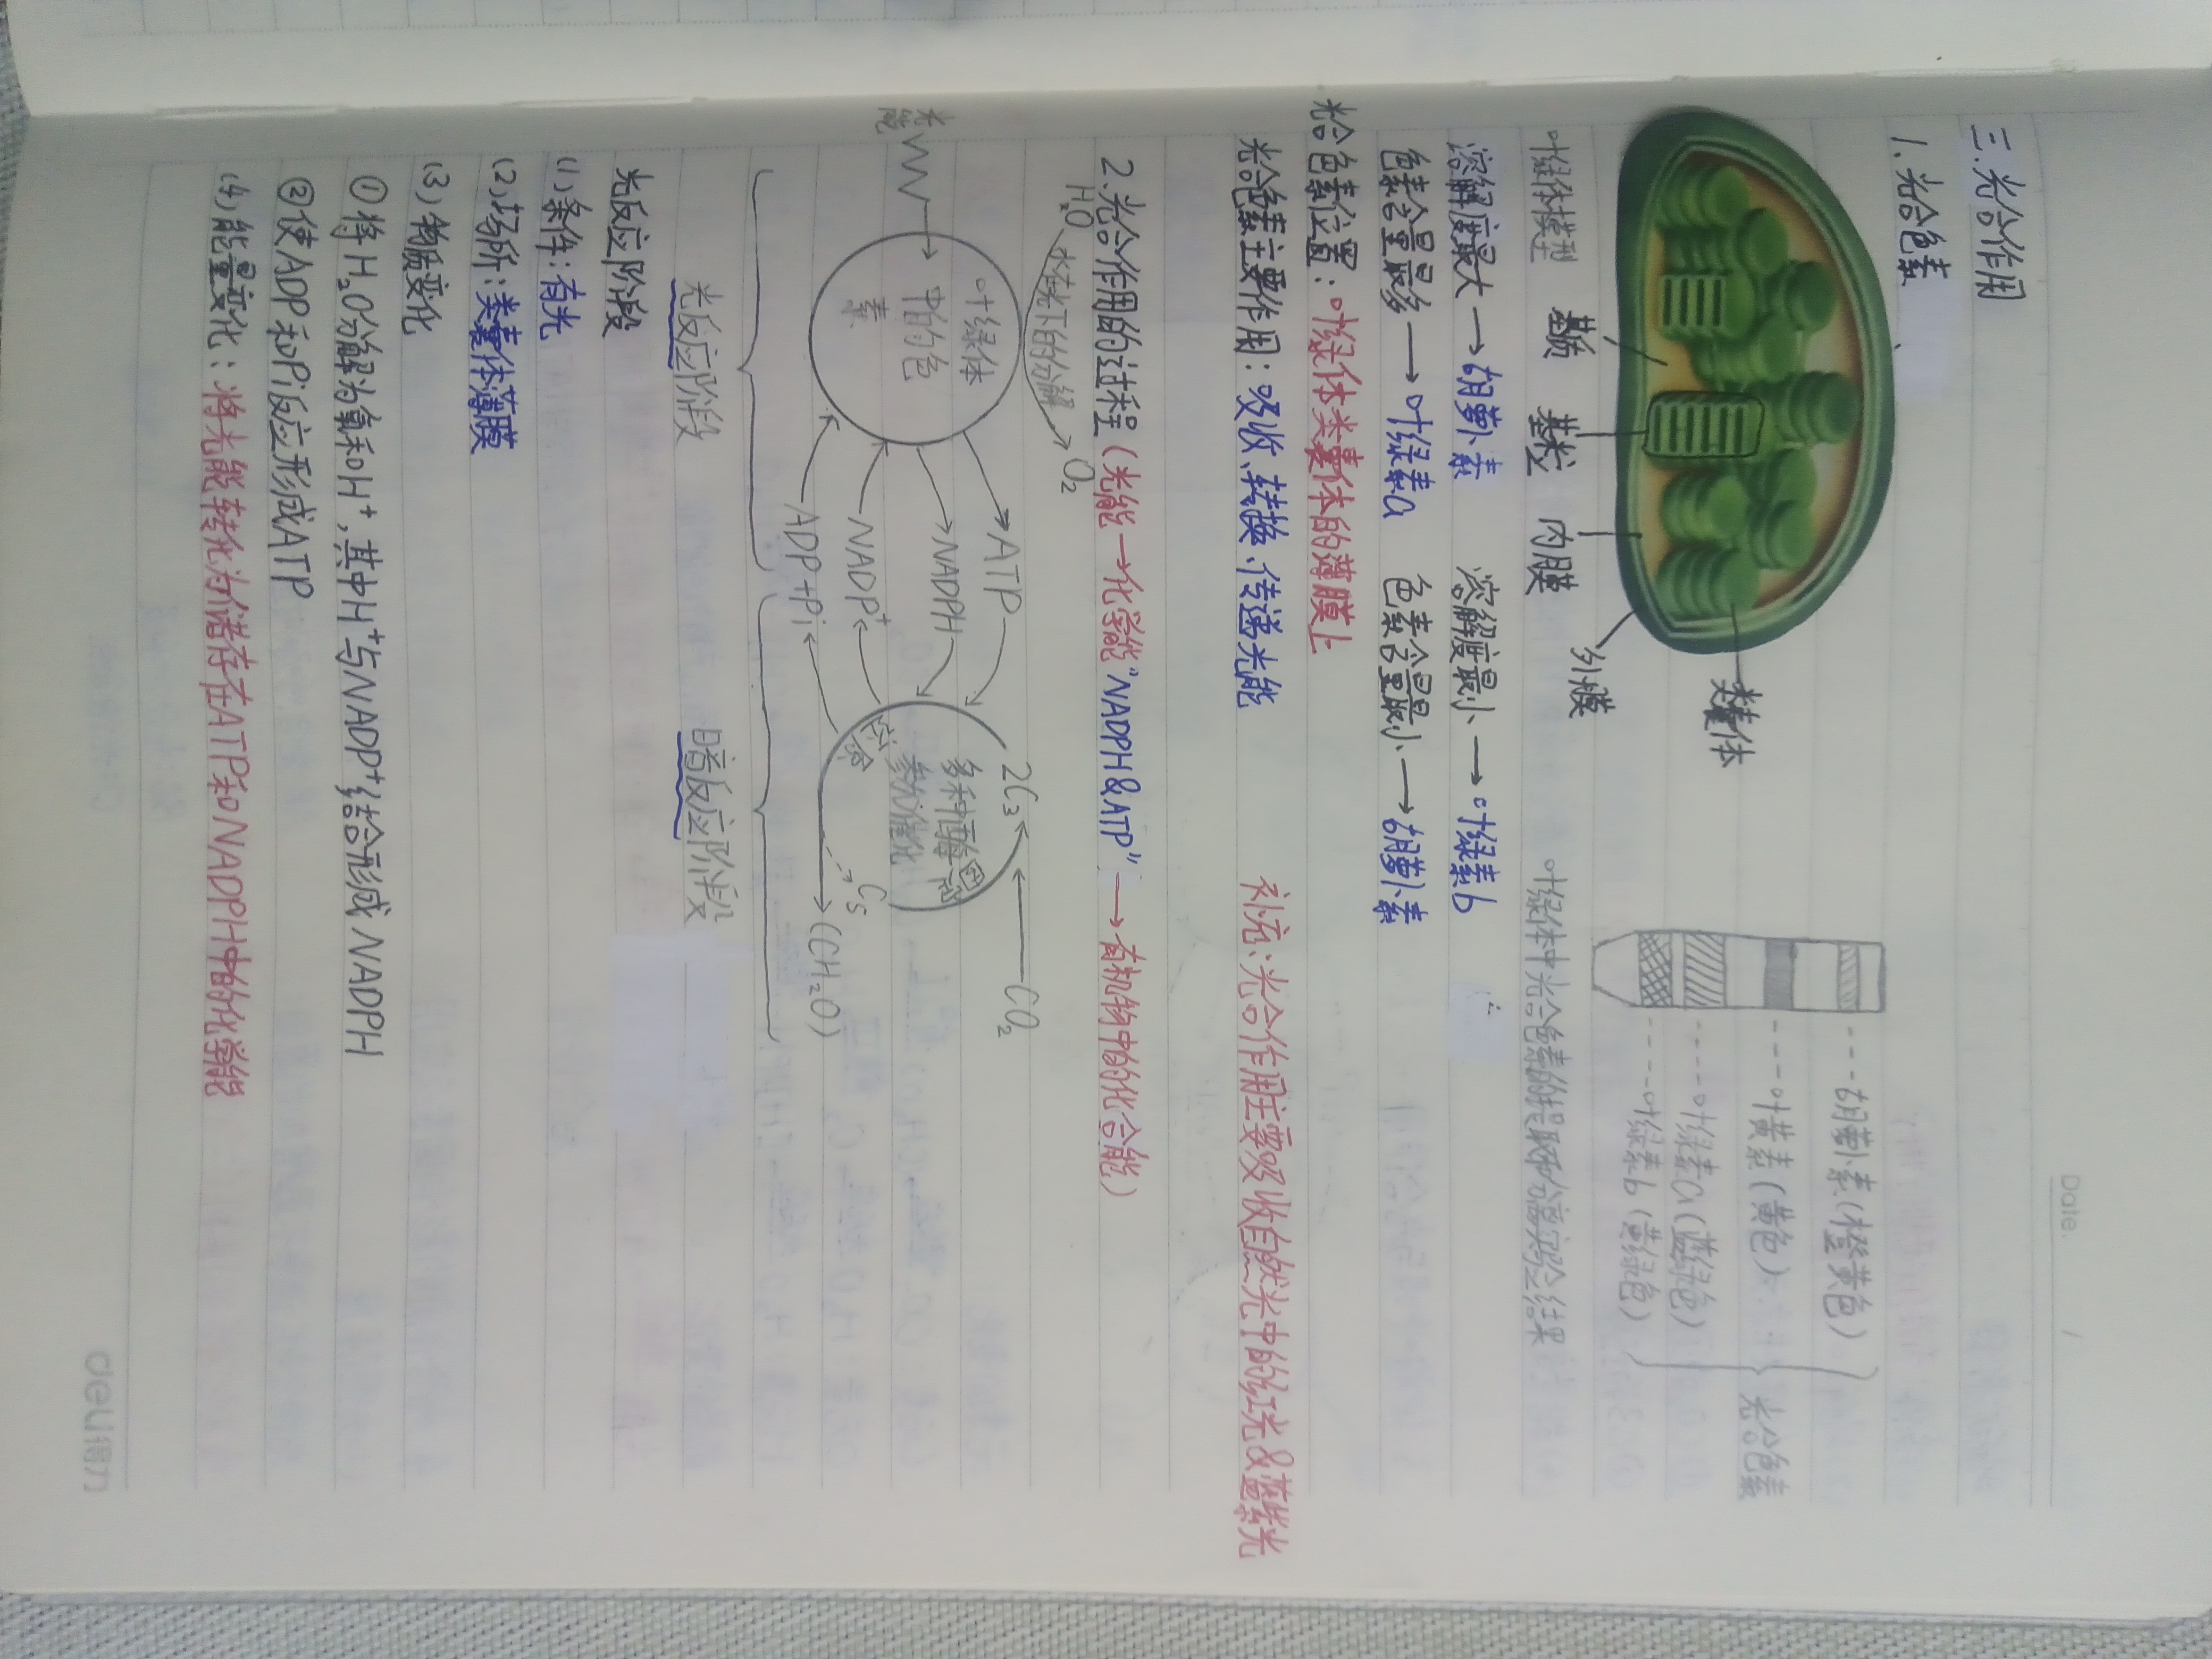 Date. /
三.光合作用
1.光合色素
类囊体
基质 基粒 内膜 外膜
叶绿体模型
胡萝卜素(橙黄色)
叶黄素(黄色)
叶绿素a(蓝绿色)
叶绿素b(黄绿色)
光合色素
叶绿体中光合色素的提取和分离实验结果
溶解度最大→胡萝卜素 溶解度最小→叶绿素b
色素含量最多→叶绿素a 色素含量最小→胡萝卜素
光合色素位置:叶绿体类囊体的薄膜上
光合色素主要作用:吸收、转换、传递光能 补充:光合作用主要吸收自然光中的红光&蓝紫光
2.光合作用的过程(光能→化学能"NADPH&ATP"→有机物中的化合能)
H₂O 水在光下的分解 O₂
光能
叶绿体
中的色
素
ATP
NADPH
NADP⁺
ADP+Pi
2C₃
CO₂
固定
多种酶
参加催化
还原
C₅
(CH₂O)
光反应阶段 暗反应阶段
光反应阶段
(1)条件:有光
(2)场所:类囊体薄膜
(3)物质变化
①将H₂O分解为氧和H⁺,其中H⁺与NADP⁺结合形成NADPH
②使ADP和Pi反应形成ATP
(4)能量变化:将光能转化为储存在ATP和NADPH中的化学能
deli得力